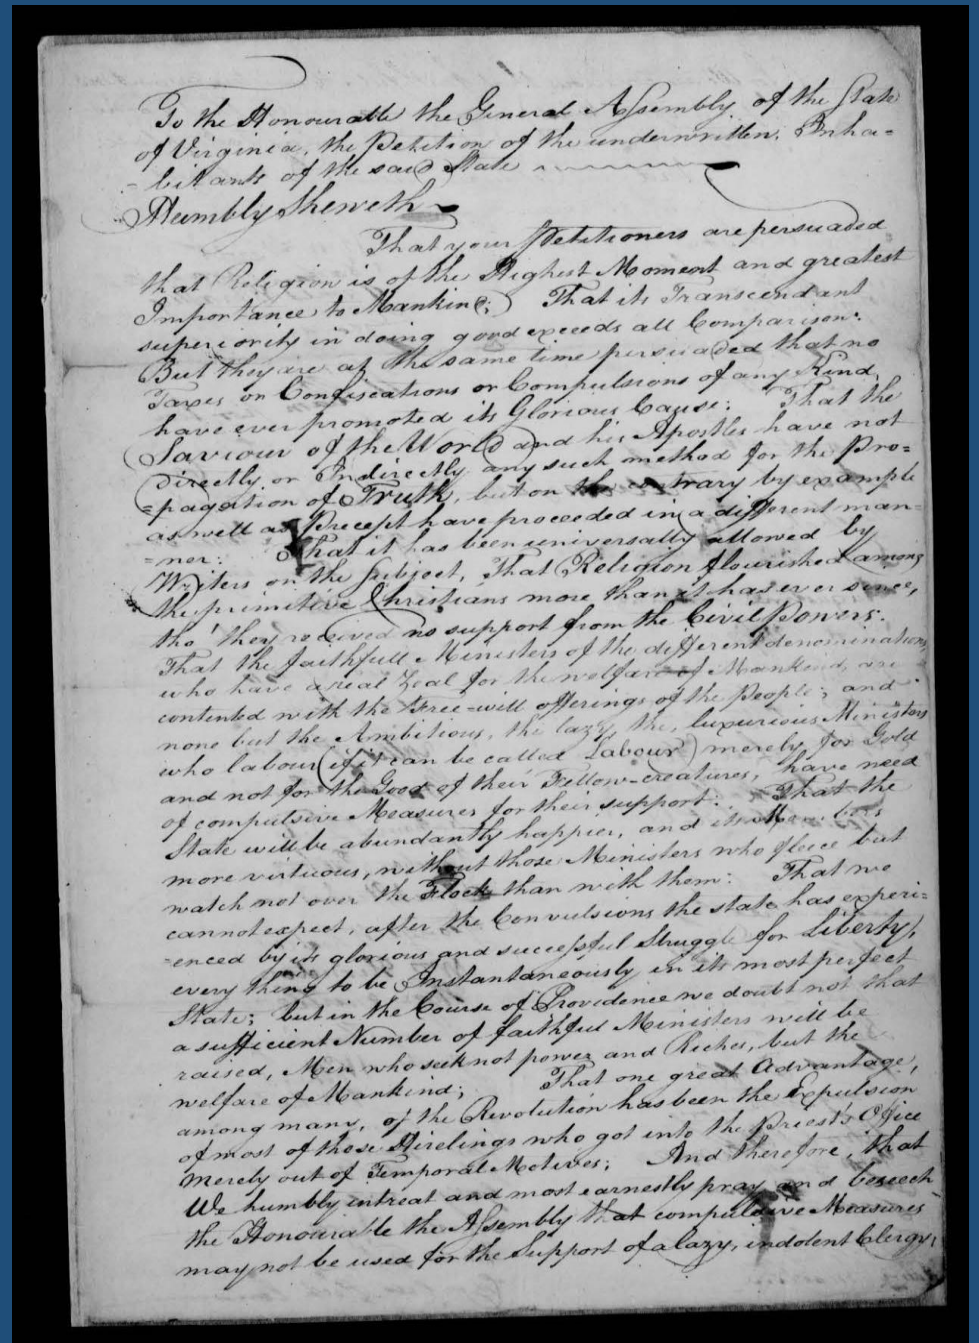 To the Honourable the General Assembly of the State
of Virginia, the Petition of the underwritten, Inha=
=bitants of the said State
Humbly Sheweth
That your Petitioners are persuaded
that Religion is of the Highest Moment and greatest
Importance to Mankind; That its Transcendant
superiority in doing good exceeds all Comparison:
But they are at the same time persuaded that no
Taxes or Confiscations or Compulsions of any Kind,
have ever promoted its Glorious Cause: That the
Saviour of the World and his Apostles have not
directly, or Indirectly any such method for the Pro=
=pagation of Truth, but on the contrary by example
as well as Precept have proceeded in a different man=
=ner: That it has been universally allowed by
Writers on the Subject, That Religion flourished among
the primitive Christians more than it has ever since,
tho' they received no support from the Civil Powers:
That the faithfull Ministers of the different denominations,
who have a real Zeal for the welfare of Mankind, are
contented with the Free=will offerings of the People; and
none but the Ambitious, the lazy, the, luxurious Ministers
who labour (if it can be called Labour) merely for Gold
and not for the Good of their Fellow-creatures, have need
of compulsive Measures for their support: That the
State will be abundantly happier, and its Members
more virtuous, without those Ministers who fleece but
watch not over the Flock than with them: That we
cannot expect, after the Convulsions the state has experi=
=enced by its glorious and successful Struggle for Liberty,
every thing to be Instantaneously in its most perfect
State; but in the Course of Providence we doubt not that
a sufficient Number of faithful Ministers will be
raised, Men who seek not power and Riches, but the
welfare of Mankind; That one great Advantage,
among many, of the Revolution has been the Expulsion
of most of those Hirelings who got into the Priest's Office
merely out of Temporal Motives; And therefore, that
We humbly intreat and most earnestly pray and beseech
the Honourable the Assembly that compulsive Measures
may not be used for the Support of a lazy, indolent Clergy,